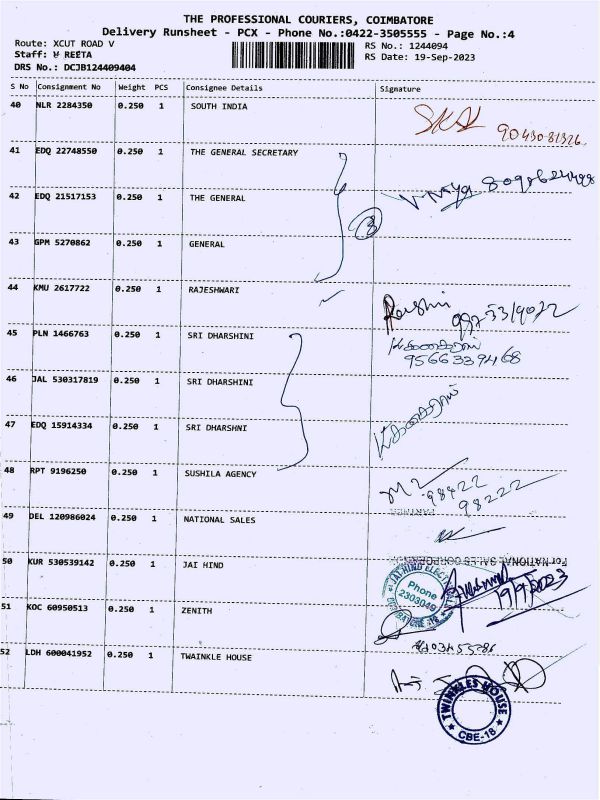 THE PROFESSIONAL COURIERS, COIMBATORE
Delivery Runsheet - PCX - Phone No.:0422-3505555 - Page No.:4
Route: XCUT ROAD V
RS No.: 1244094
Staff: REETA
RS Date: 19-Sep-2023
DRS No.: DCJB124409404
S No Consignment No Weight PCS Consignee Details Signature
40 NLR 2284350 0.250 1 SOUTH INDIA
90430-81326
41 EDQ 22748550 0.250 1 THE GENERAL SECRETARY
42 EDQ 21517153 0.250 1 THE GENERAL
3
43 GPM 5270862 0.250 1 GENERAL
44 KMU 2617722 0.250 1 RAJESHWARI
45 PLN 1466763 0.250 1 SRI DHARSHINI
9566339468
46 JAL 530317819 0.250 1 SRI DHARSHINI
47 EDQ 15914334 0.250 1 SRI DHARSHNI
48 RPT 9196250 0.250 1 SUSHILA AGENCY
98422
98222
49 DEL 120986024 0.250 1 NATIONAL SALES
For NATIONAL SALES CORPORATION
50 KUR 530539142 0.250 1 JAI HIND
JAI HIND ELECT
Phone
2303049
19/9/2023
51 KOC 60950513 0.250 1 ZENITH
52 LDH 600041952 0.250 1 TWAINKLE HOUSE
TWINKLES HOUSE
CBE-18